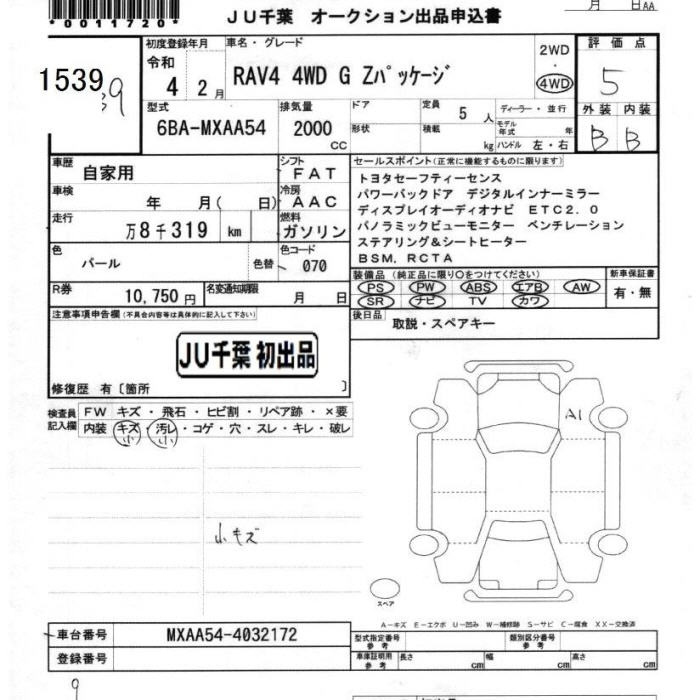 *0011720*
JU千葉 オークション出品申込書
月 日AA
1539
39
初度登録年月
令和
4 2月
車名・グレード
RAV4 4WD G Zパッケージ
2WD
・
4WD
評価点
5
外装 内装
B B
型式
6BA-MXAA54
排気量
2000
CC
ドア
形状
定員
5 人
積載
kg
ディーラー・並行
モデル年式 年
ハンドル 左・右
車歴
自家用
シフト
FAT
車検
年 月( 日)
冷房
AAC
走行
万8千319 km
燃料
ガソリン
色
パール
色替
色コード
070
R券
10,750円
名変通知期限
月 日
セールスポイント(正常に機能するものに限ります)
トヨタセーフティーセンス
パワーバックドア デジタルインナーミラー
ディスプレイオーディオナビ ETC2.0
パノラミックビューモニター ベンチレーション
ステアリング&シートヒーター
BSM、RCTA
装備品(純正品に限り○をつけてください)
PS PW ABS エアB AW
SR ナビ TV カワ
新車保証書
有・無
後日品
取説・スペアキー
注意事項申告欄(不具合内容等は具体的に記入して下さい)
JU千葉 初出品
修復歴 有〔箇所 〕
検査員記入欄
FW キズ・飛石・ヒビ割・リペア跡・×要
内装 キズ・汚レ・コゲ・穴・スレ・キレ・破レ
小 小
小キズ
A1
スペア
A-キズ E-エクボ U-凹み W-補修跡 S-サビ C-腐食 XX-交換済
車台番号
MXAA54-4032172
登録番号
型式指定番号
参考
類別区分番号
参考
車庫証明用
参考
長さ cm
幅 cm
高さ cm
9